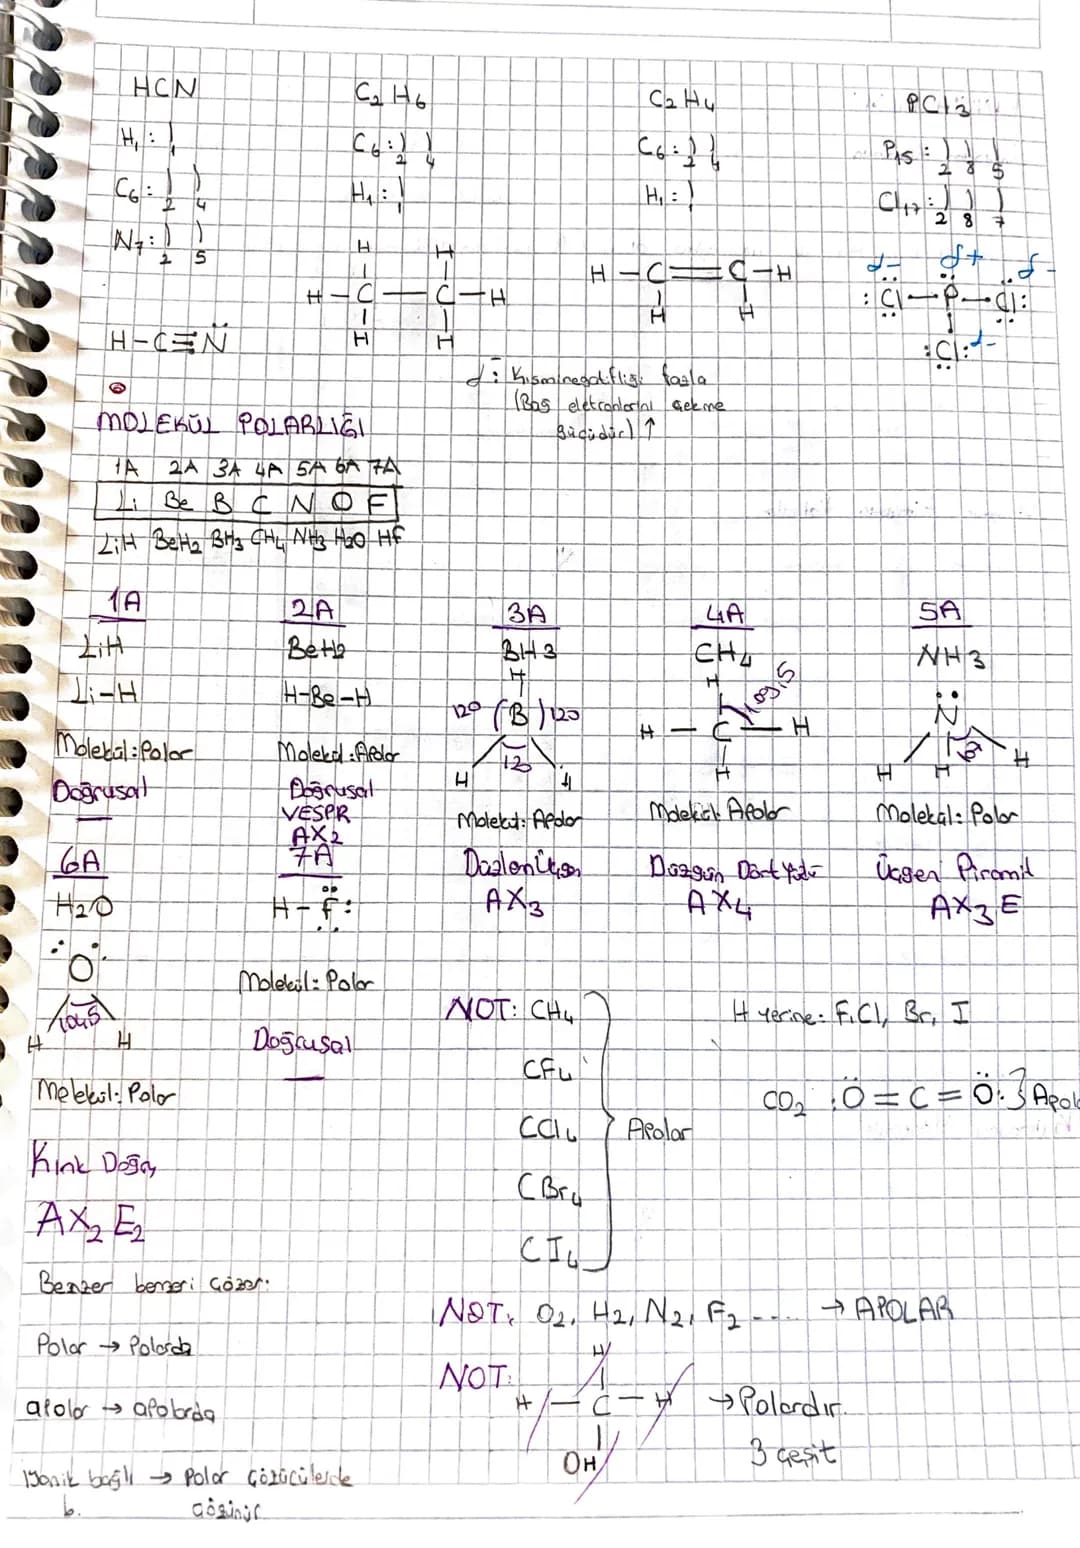 HCN
H₁: ) 1
C₆: ) ) 2 4
N₇: ) ) 2 5
H–C≡N̈
C₂H₆
C₆: ) ) 2 4
H₁: ) 1
H H
H–C—C–H
H H
C₂H₄
C₆: ) ) 2 4
H₁: ) 1
H–C=C–H
H H
PCl3
P₁₅: ) ) ) 2 8 5
Cl₁₇: ) ) ) 2 8 7
δ- δ+ δ-
:Cl–P–Cl:
:Cl: δ-
δ: Kısmi negatifliği fazla
(Bağ elektronlarını çekme
gücüdür) ↑
MOLEKÜL POLARLIĞI
1A 2A 3A 4A 5A 6A 7A
Li Be B C N O F
LiH BeH₂ BH₃ CH₄ NH₃ H₂O HF
1A
LiH
Li–H
Molekül: Polar
Doğrusal
2A
BeH₂
H–Be–H
Molekül: Apolar
Doğrusal
VESPR
AX2
3A
BH3
H
120 (B) 120
120
H H
Molekül: Apolar
Düzlem Üçgen
AX₃
4A
CH₄
H
109,5
H – C – H
H
Molekül: Apolar
Düzgün Dört Yüzlü
AX₄
5A
NH3
N̈
H H H
Molekül: Polar
Üçgen Piramit
AX₃E
6A
H₂O
O
104,5
H H
Molekül: Polar
Kırık Doğru
AX₂E₂
7A
H–F:
Molekül: Polar
Doğrusal
NOT: CH₄
CF₄
CCl₄
CBr₄
CI₄
Apolar
H yerine: F, Cl, Br, I
CO₂ :Ö=C=Ö: } Apol
Benzer benzeri çözer:
Polar → Polarda
apolar → apolarda
İyonik bağlı → Polar çözücülerde
b. çözünür
NOT: O₂, H₂, N₂, F₂ .... → APOLAR
NOT:
H
H – C – H → Polardır.
OH
3 çeşit